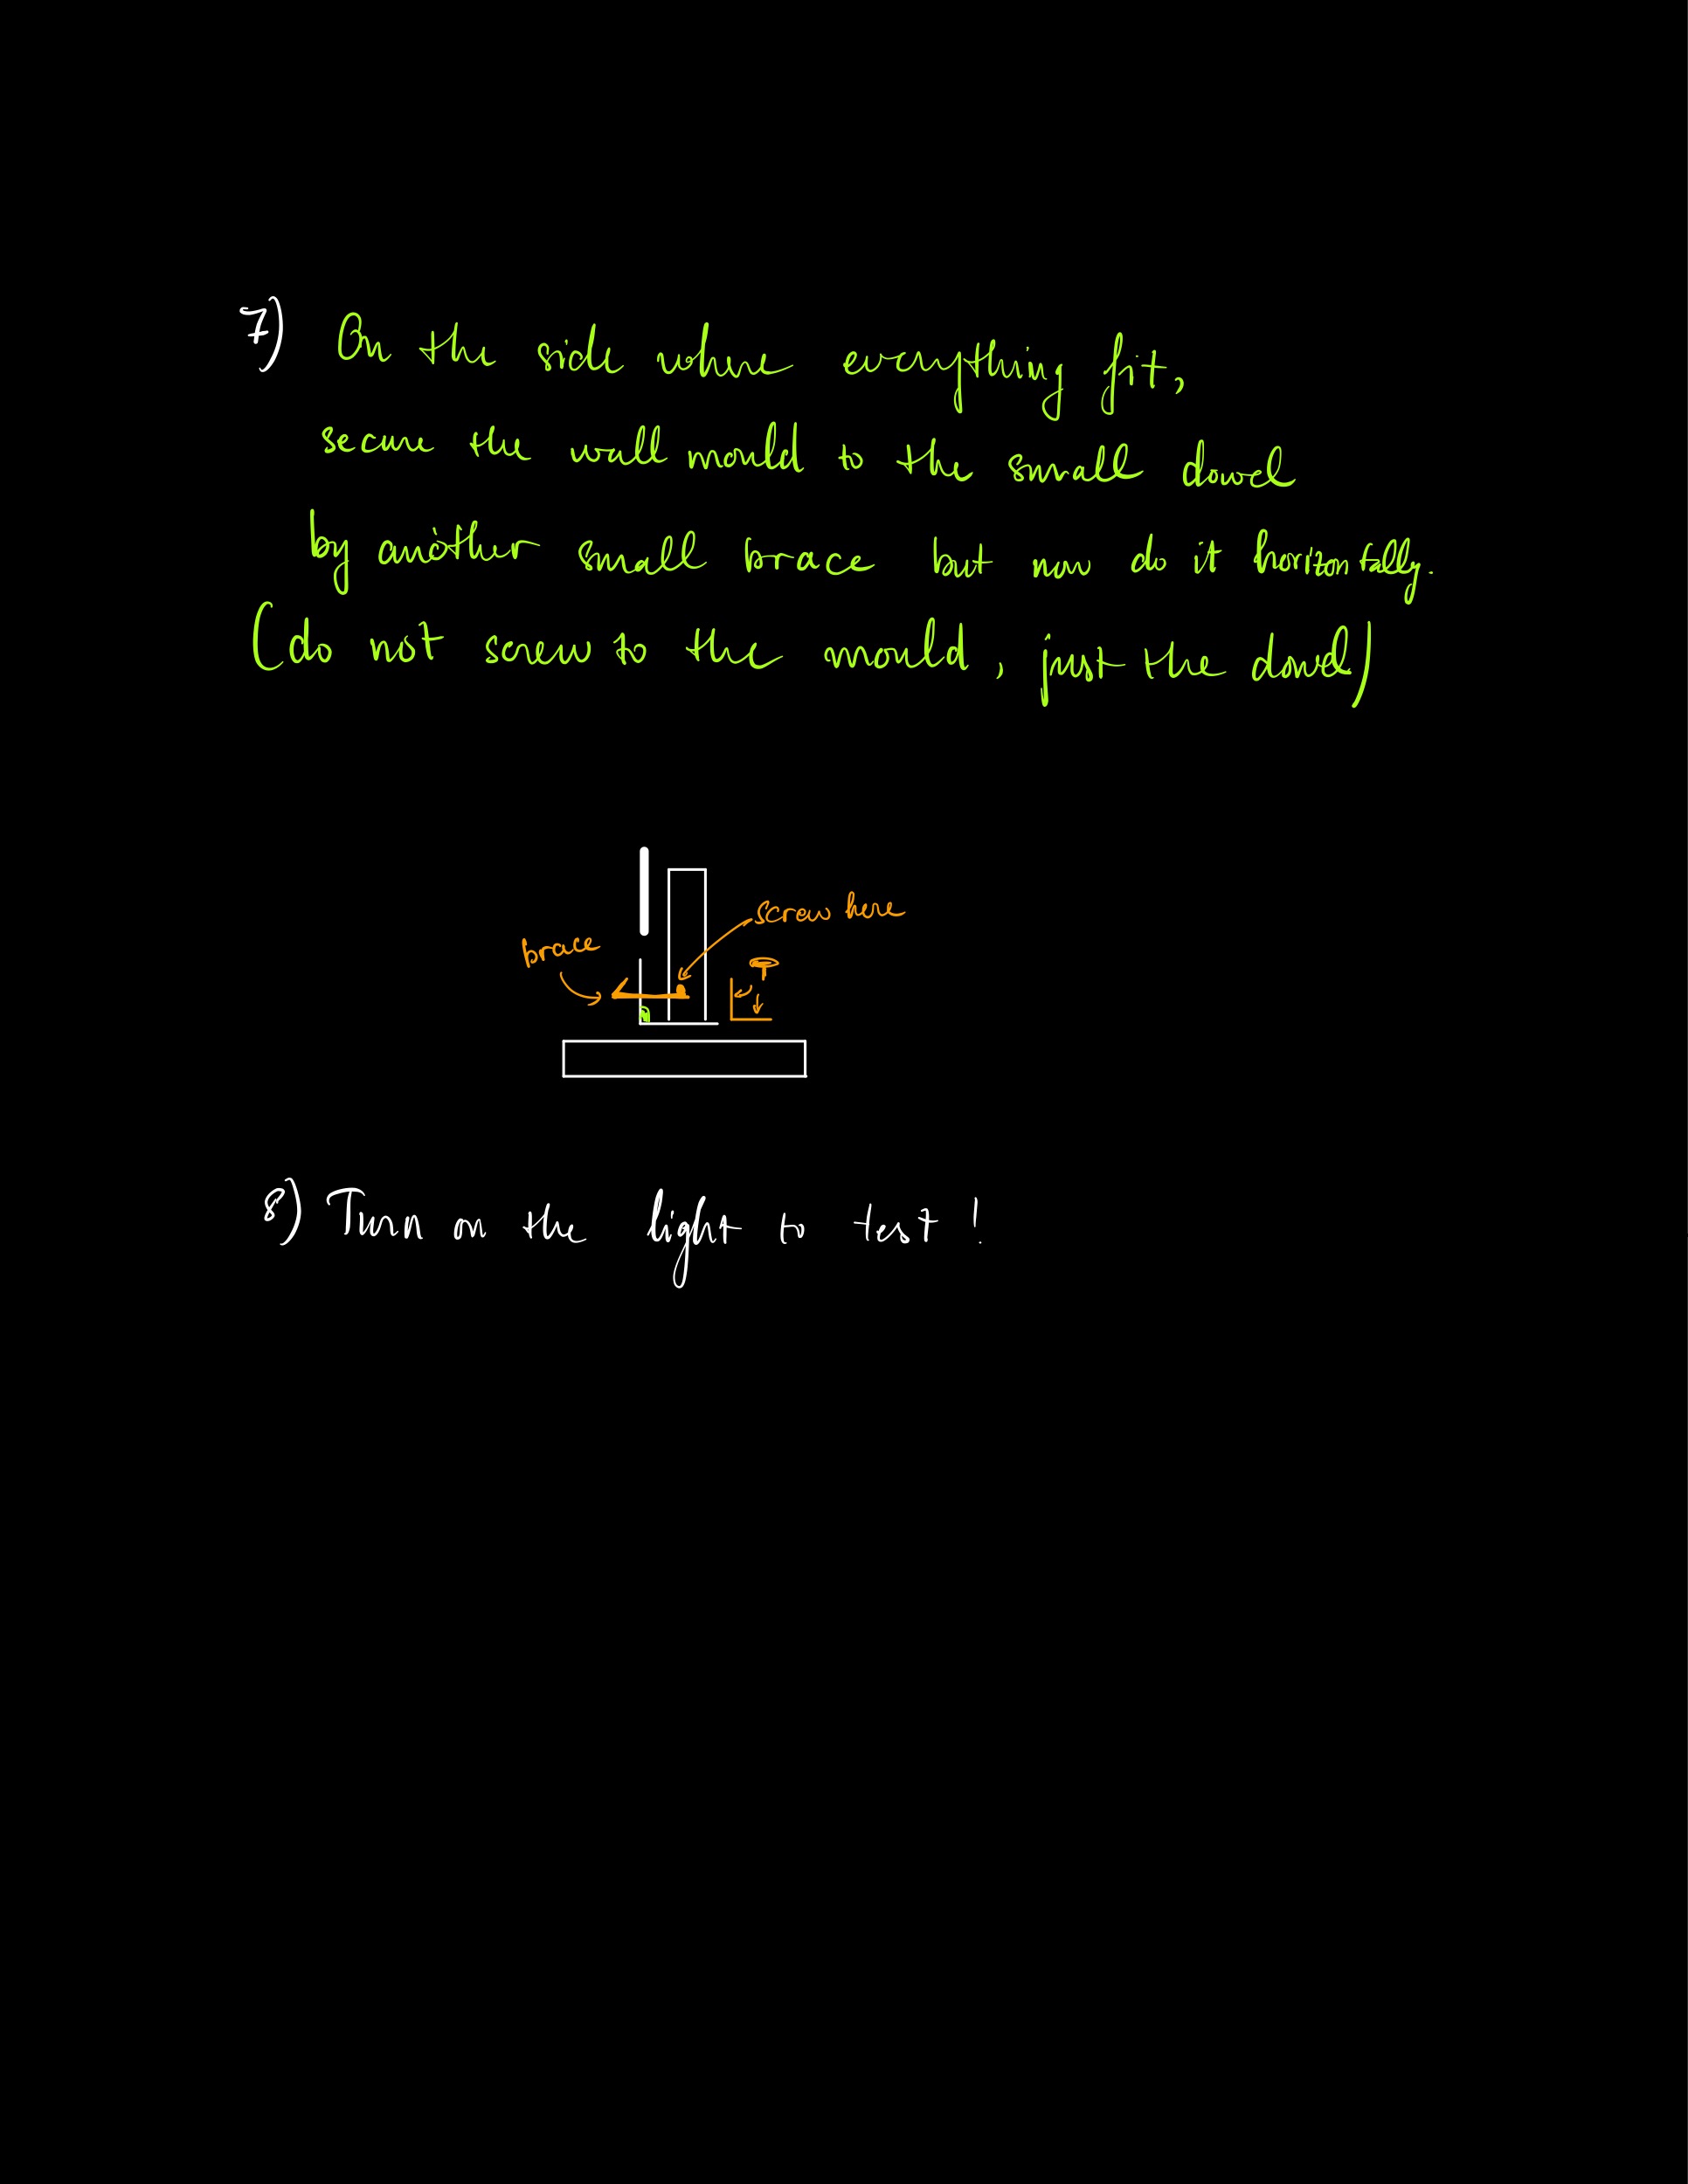 7) On the side where everything fit,
secure the wall mould to the small dowel
by another small brace but now do it horizontally.
(do not screw to the mould, just the dowel)
screw here
brace
8) Turn on the light to test!